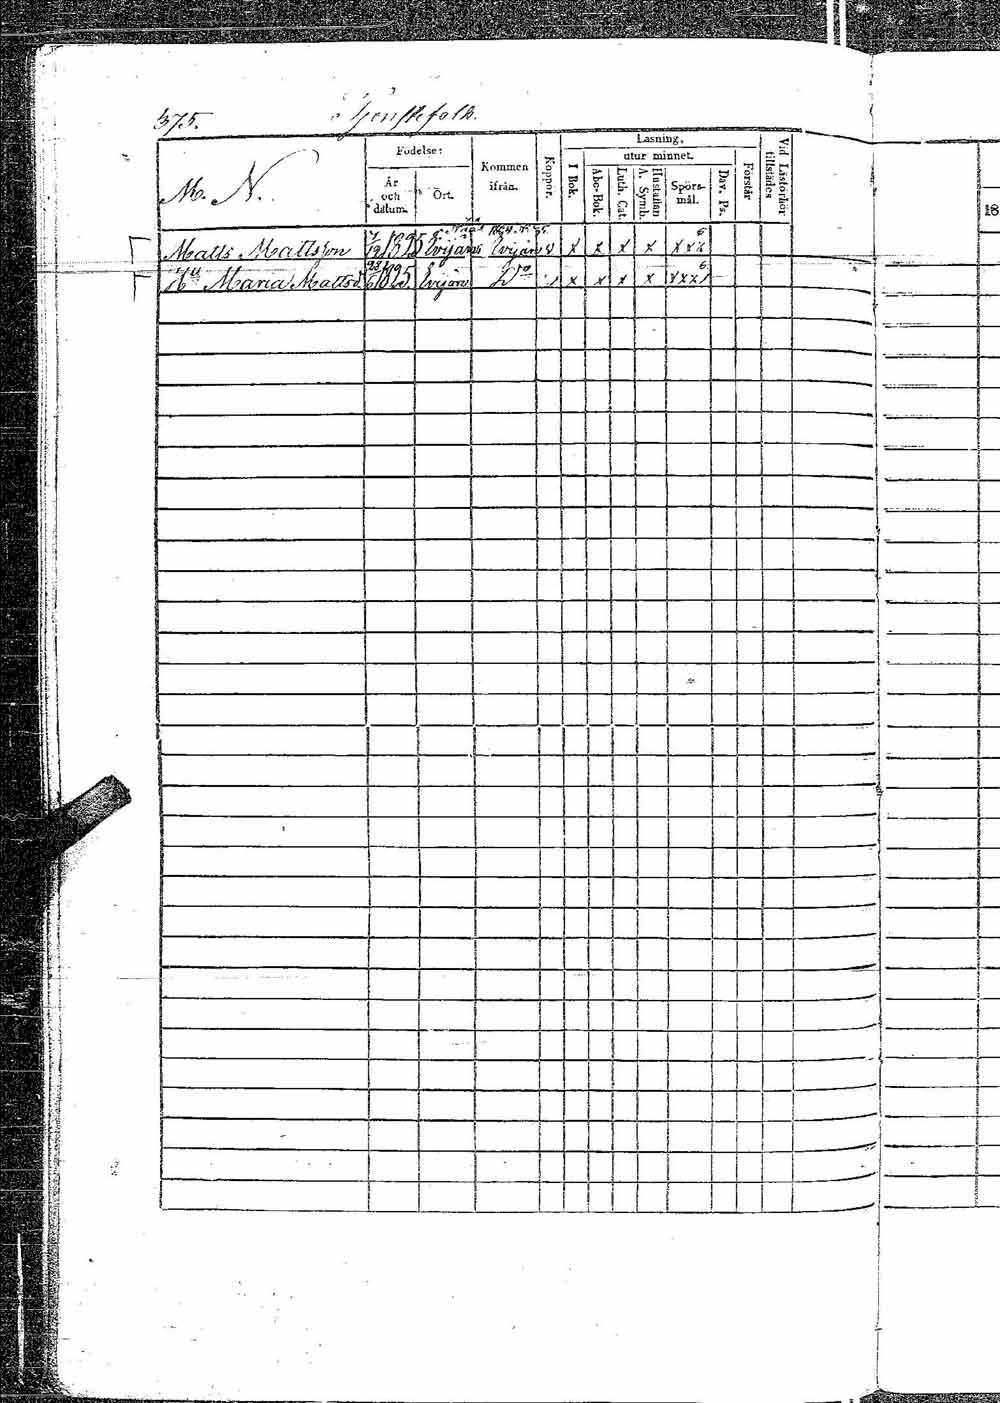 375.
Tjenstefolk.
M. N.
Födelse:
År och dátum.
Ort.
Kommen ifrån.
Koppor.
Läsning,
I Bok.
utur minnet.
Abc-Bok.
Luth. Cat.
Hustaflan A. Symb.
Spörs-mål.
Dav. Ps.
Förstår
Vid Läsförhör tillstädes
18
Matts Mattsson 1825 Evijärvi Evijärvi v x x x x x x x
Hu Maria Mattsd. 1825 Evijärvi Do x x x x x x x